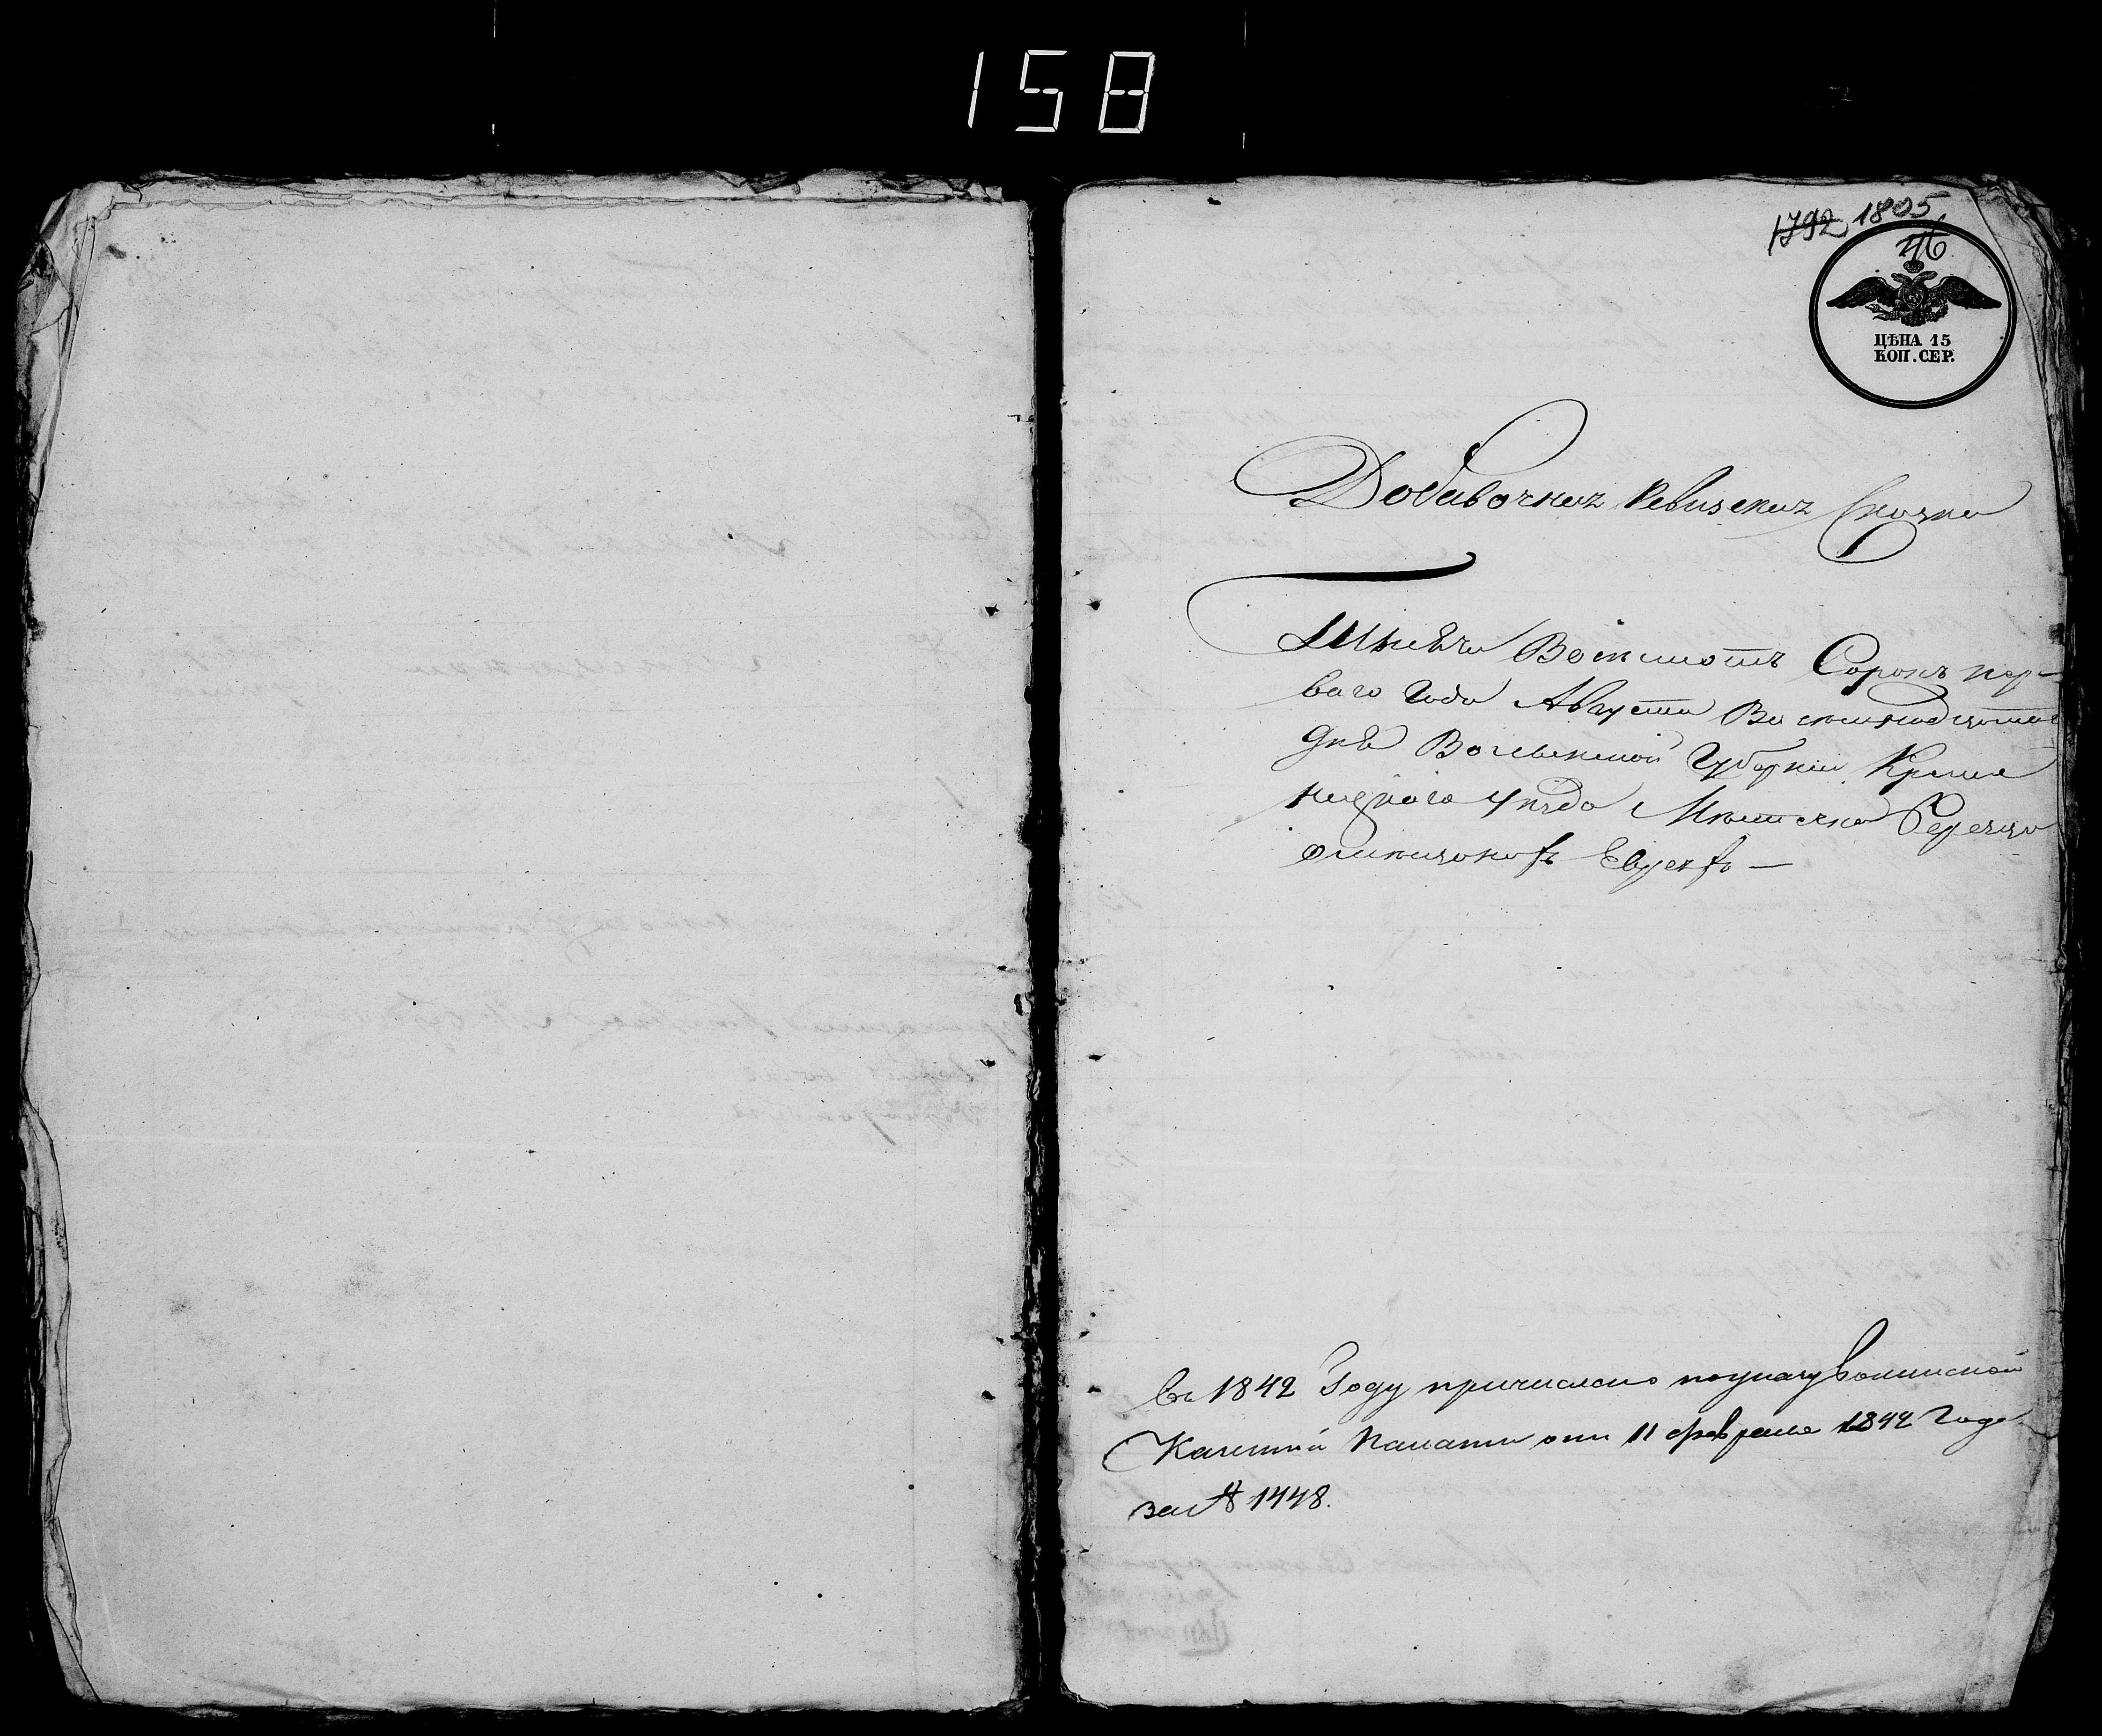 158
1792 1805
116
ЦѢНА 15
КОП. СЕР.
Добавочная Ревизская Сказка
Тысяча Восемьсотъ Сорокъ пер-
ваго Года Августа Восемнадцатаго
дня Волынской Губернии Креме
нецкого уезда Местечка
Евреяхъ —
Въ 1842 Году причислено по указу Волынской
Казенной Палаты отъ 11 февраля 1842 Года
за № 1448.